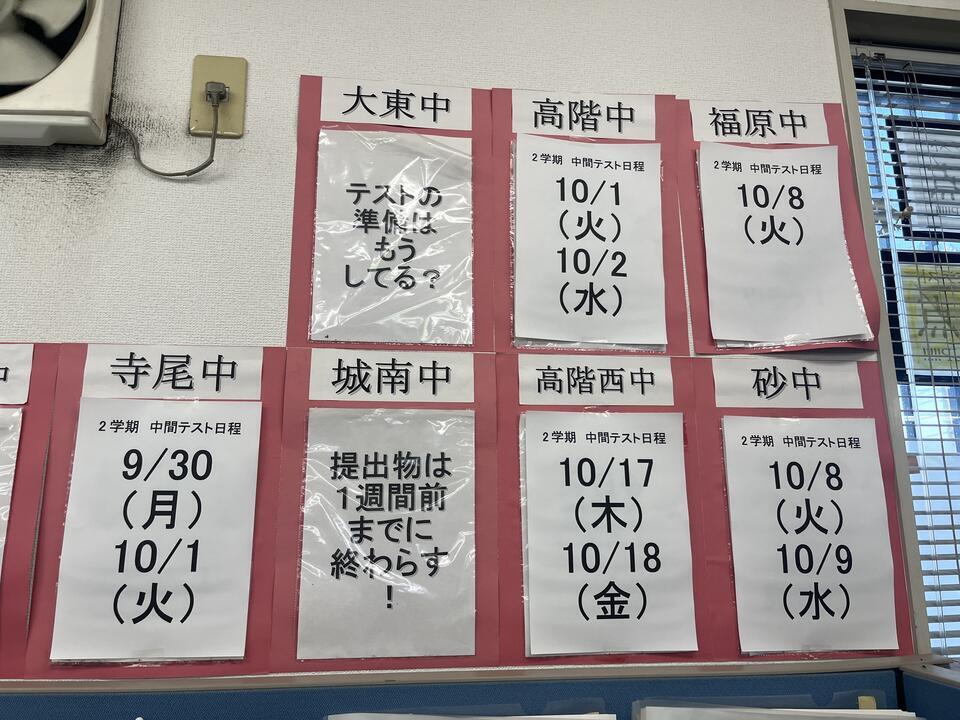 大東中
テストの
準備は
もう
してる？
高階中
2学期 中間テスト日程
10/1
(火)
10/2
(水)
福原中
2学期 中間テスト日程
10/8
(火)
中
寺尾中
2学期 中間テスト日程
9/30
(月)
10/1
(火)
城南中
提出物は
1週間前
までに
終わらす
！
高階西中
2学期 中間テスト日程
10/17
(木)
10/18
(金)
砂中
2学期 中間テスト日程
10/8
(火)
10/9
(水)